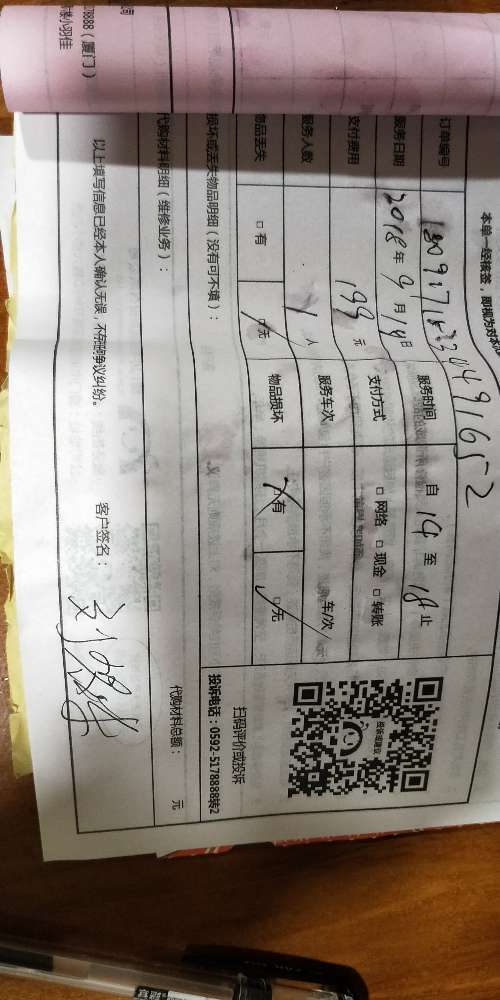 本单一经接签，即视为对本
订单编号
服务日期 2018年9月14日 服务时间 自 14 至 18 止
支付费用 199 元 支付方式 □ 网络 □ 现金 □ 转账
服务人数 1 人 服务车次 车/次
物品丢失 □ 有 □ 无 物品损坏 □ 有 □ 无
投诉或建议
扫码评价或投诉
投诉电话：0592-5178888转2
损坏或丢失物品明细（没有可不填）：
代购材料明细（维修业务）：
代购材料总额： 元
以上填写信息已经本人确认无误，不存在争议纠纷。 客户签名：
178888（厦门）
小羽佳